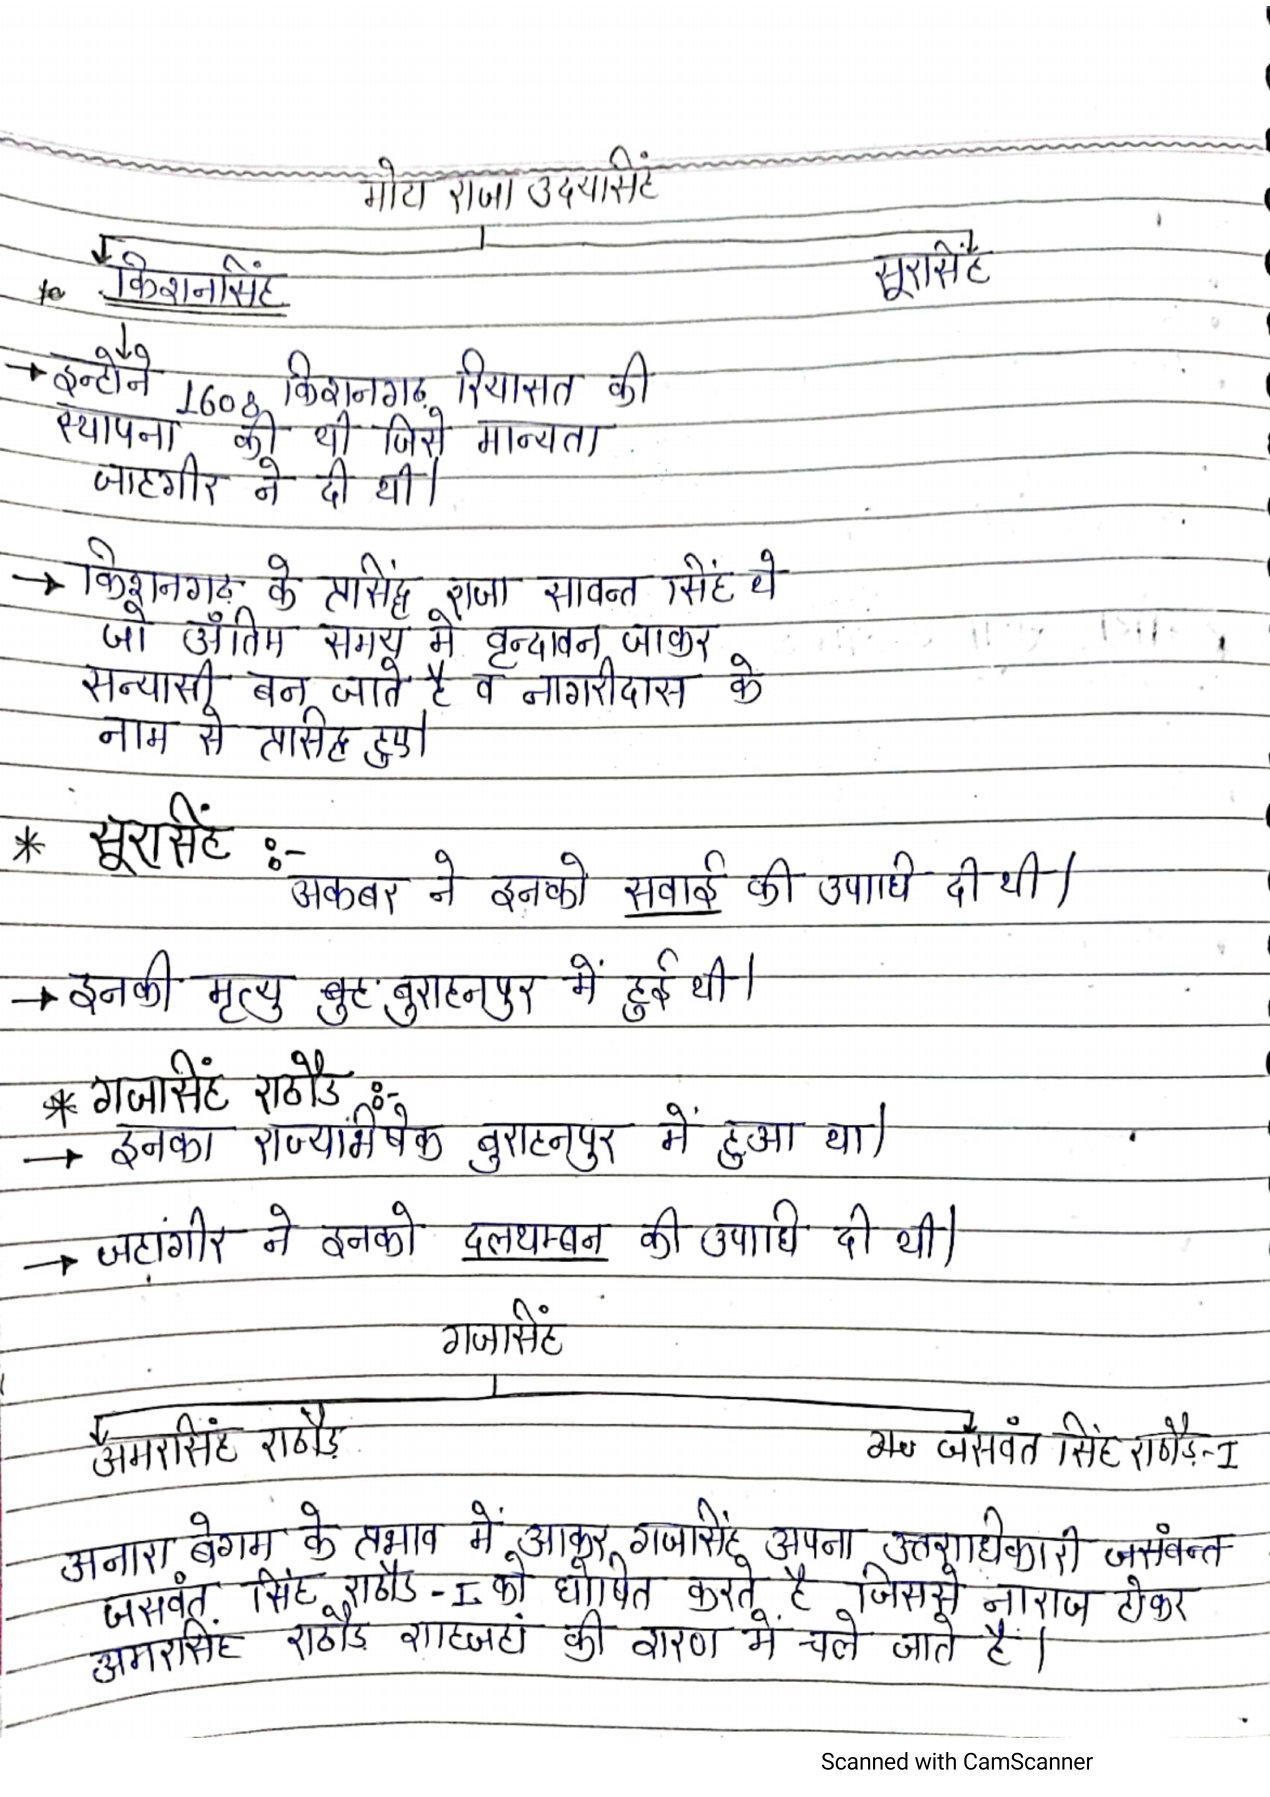 मोटा राजा उदयसिंह
किशनसिंह सूरसिंह
→ इन्होने 1608 किशनगढ़ रियासत की
स्थापना की थी जिसे मान्यता
जाहगीर ने दी थी।
→ किशनगढ़ के प्रसिद्ध राजा सावन्त सिंह थे
जो अँतिम समय में वृन्दावन जाकर
सन्यासी बन जाते है व नागरीदास के
नाम से प्रसिद्ध हुए।
* सूरसिंह :-
अकबर ने इनको सवाई की उपाधि दी थी।
→ इनकी मृत्यु बुराहनपुर में हुई थी।
* गजसिंह राठौड :-
→ इनका राज्याभिषेक बुराहनपुर में हुआ था।
→ जहांगीर ने इनको दलथम्बन की उपाधि दी थी।
गजसिंह
अमरसिंह राठौड़ जसवंत सिंह राठौड़-I
अनारा बेगम के प्रभाव में आकर गजसिंह अपना उत्तराधिकारी जसवन्त
जसवंत सिंह राठौड-I को घोषित करते है जिससे नाराज होकर
अमरसिंह राठौड़ शाहजहां की शरण में चले जाते है।
Scanned with CamScanner